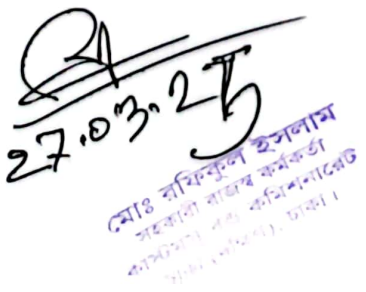 27.03.25
মোঃ রফিকুল ইসলাম
সহকারী রাজস্ব কর্মকর্তা
কাস্টমস এবং কমিশনারেট
ঢাকা (দক্ষিণ), ঢাকা।